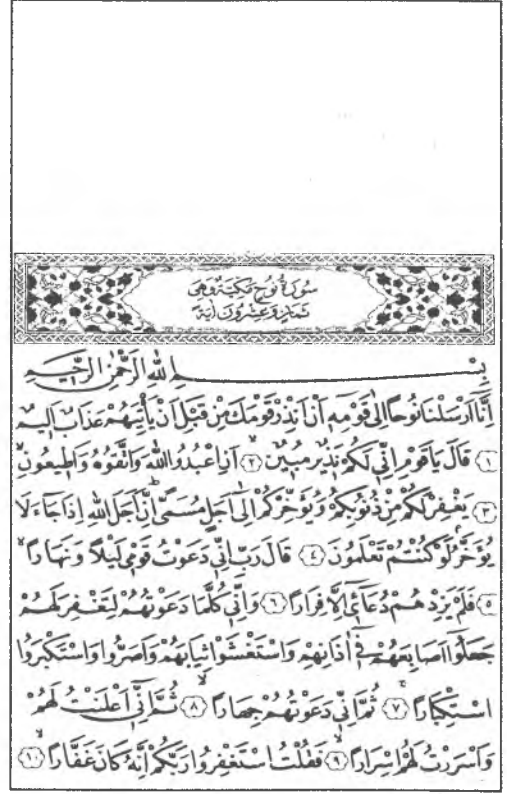 سُورَةُ نُوحٍ مَكِّيَّةٌ وَهِىَ
ثَمَانٍ وَعِشْرُونَ اٰيَةً
بِسْــــــمِ اللّٰهِ الرَّحْمٰنِ الرَّحٖيمِ
اِنَّٓا اَرْسَلْنَا نُوحًا اِلٰى قَوْمِهٖٓ اَنْ اَنْذِرْ قَوْمَكَ مِنْ قَبْلِ اَنْ يَأْتِيَهُمْ عَذَابٌ اَلٖيمٌ
﴿١﴾ قَالَ يَا قَوْمِ اِنّٖى لَكُمْ نَذٖيرٌ مُبٖينٌۙ ﴿٢﴾ اَنِ اعْبُدُوا اللّٰهَ وَاتَّقُوهُ وَاَطٖيعُونِۙ
﴿٣﴾ يَغْفِرْ لَكُمْ مِنْ ذُنُوبِكُمْ وَيُؤَخِّرْكُمْ اِلٰٓى اَجَلٍ مُسَمًّىۜ اِنَّ اَجَلَ اللّٰهِ اِذَا جَٓاءَ لَا
يُؤَخَّرُۢ لَوْ كُنْتُمْ تَعْلَمُونَ ﴿٤﴾ قَالَ رَبِّ اِنّٖى دَعَوْتُ قَوْمٖى لَيْلًا وَنَهَارًاۙ
﴿٥﴾ فَلَمْ يَزِدْهُمْ دُعَٓائٖٓى اِلَّا فِرَارًا ﴿٦﴾ وَاِنّٖى كُلَّمَا دَعَوْتُهُمْ لِتَغْفِرَ لَهُمْ
جَعَلُٓوا اَصَابِعَهُمْ فٖٓى اٰذَانِهِمْ وَاسْتَغْشَوْا ثِيَابَهُمْ وَاَصَرُّوا وَاسْتَكْبَرُوا
اسْتِكْبَارًاۚ ﴿٧﴾ ثُمَّ اِنّٖى دَعَوْتُهُمْ جِهَارًاۙ ﴿٨﴾ ثُمَّ اِنّٖٓى اَعْلَنْتُ لَهُمْ
وَاَسْرَرْتُ لَهُمْ اِسْرَارًاۙ ﴿٩﴾ فَقُلْتُ اسْتَغْفِرُوا رَبَّكُمْ اِنَّهُ كَانَ غَفَّارًاۙ ﴿١٠﴾